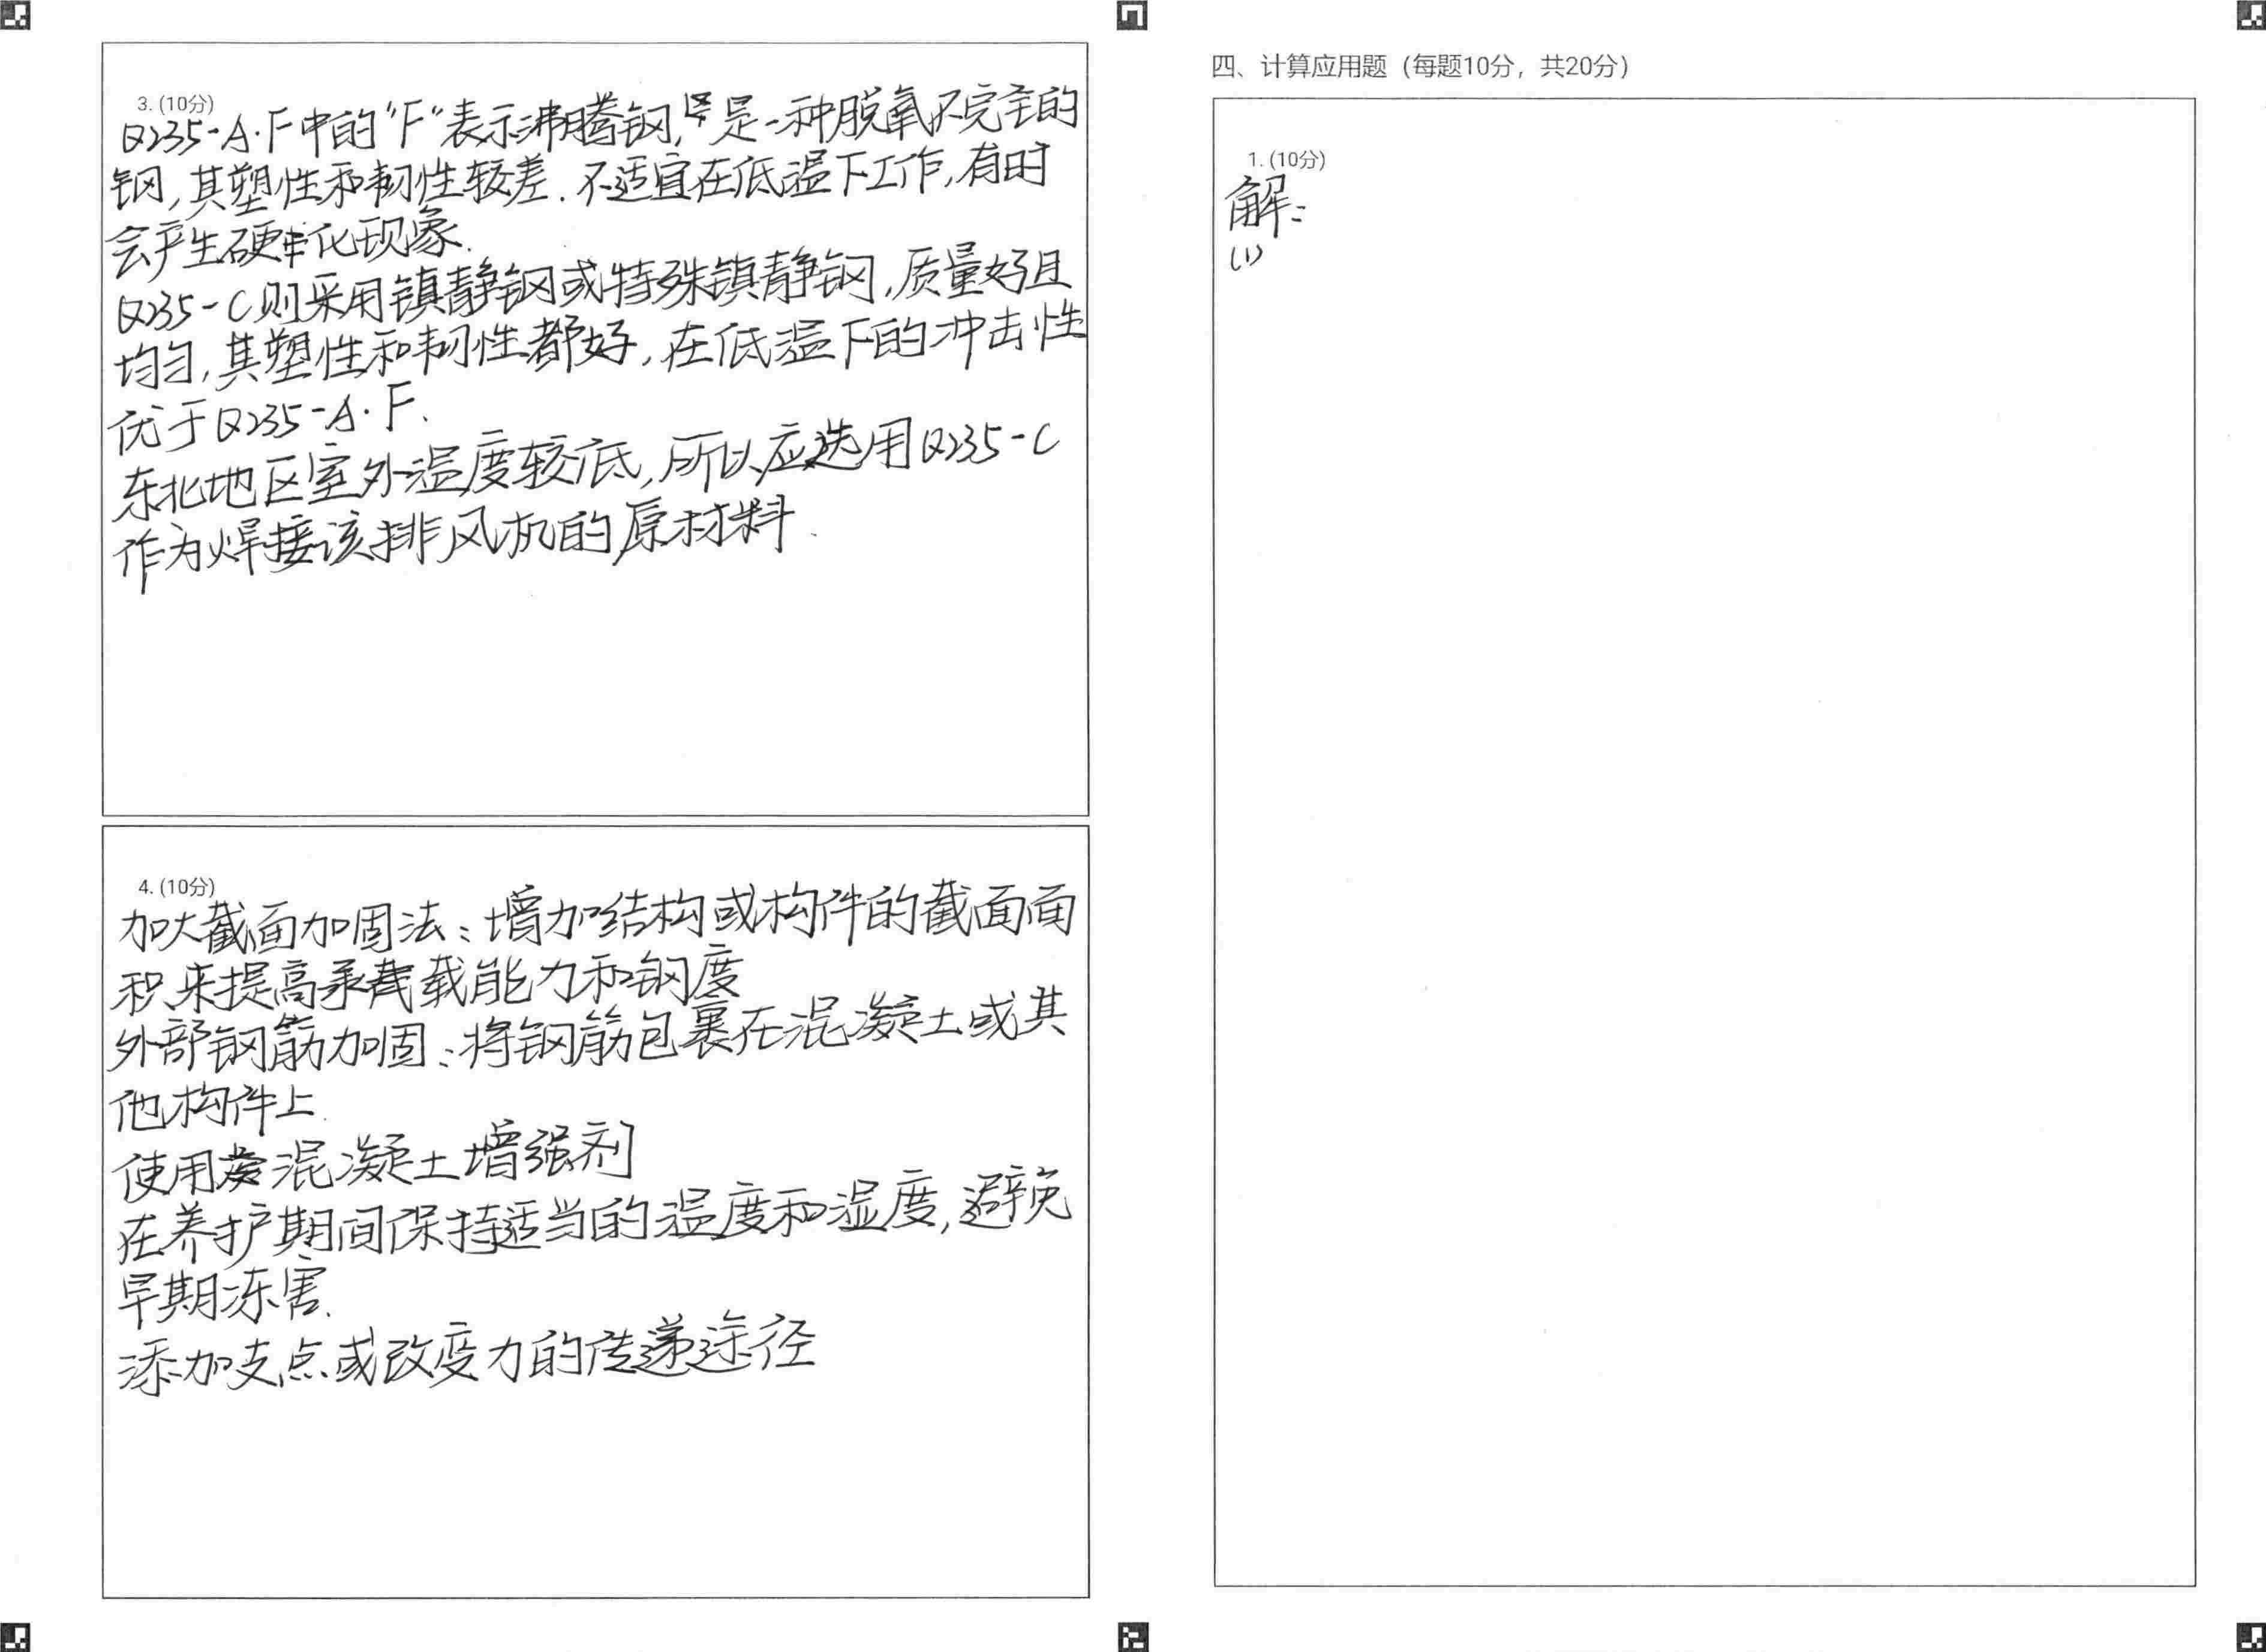 3. (10分)
Q235-A·F中的“F”表示沸腾钢,是一种脱氧不完全的
钢,其塑性和韧性较差.不适宜在低温下工作,有时
会产生硬化现象.
Q235-C则采用镇静钢或特殊镇静钢,质量好且
均匀,其塑性和韧性都好,在低温下的冲击性
优于Q235-A·F.
东北地区室外温度较底,所以应选用Q235-C
作为焊接该排风机的原材料.
4. (10分)
加大截面加固法:增加结构或构件的截面面
积来提高承载能力和钢度
外部钢筋加固:将钢筋包裹在混凝土或其
他构件上.
使用混凝土增强剂
在养护期间保持适当的温度和湿度,避免
早期冻害.
添加支点或改变力的传递途径
四、计算应用题（每题10分，共20分）
1. (10分)
解:
(1)